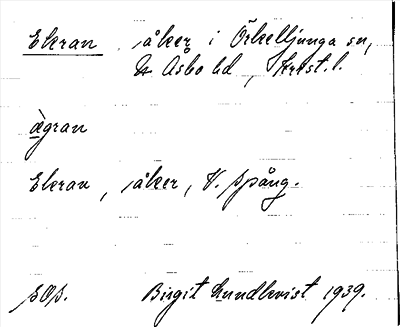 Ekran åker i Örkelljunga sn,
N Åsbo hd, Krist. l.
ägran
Ekran, åker, V. Spång.
SOS. Birgit Lundkvist 1939.